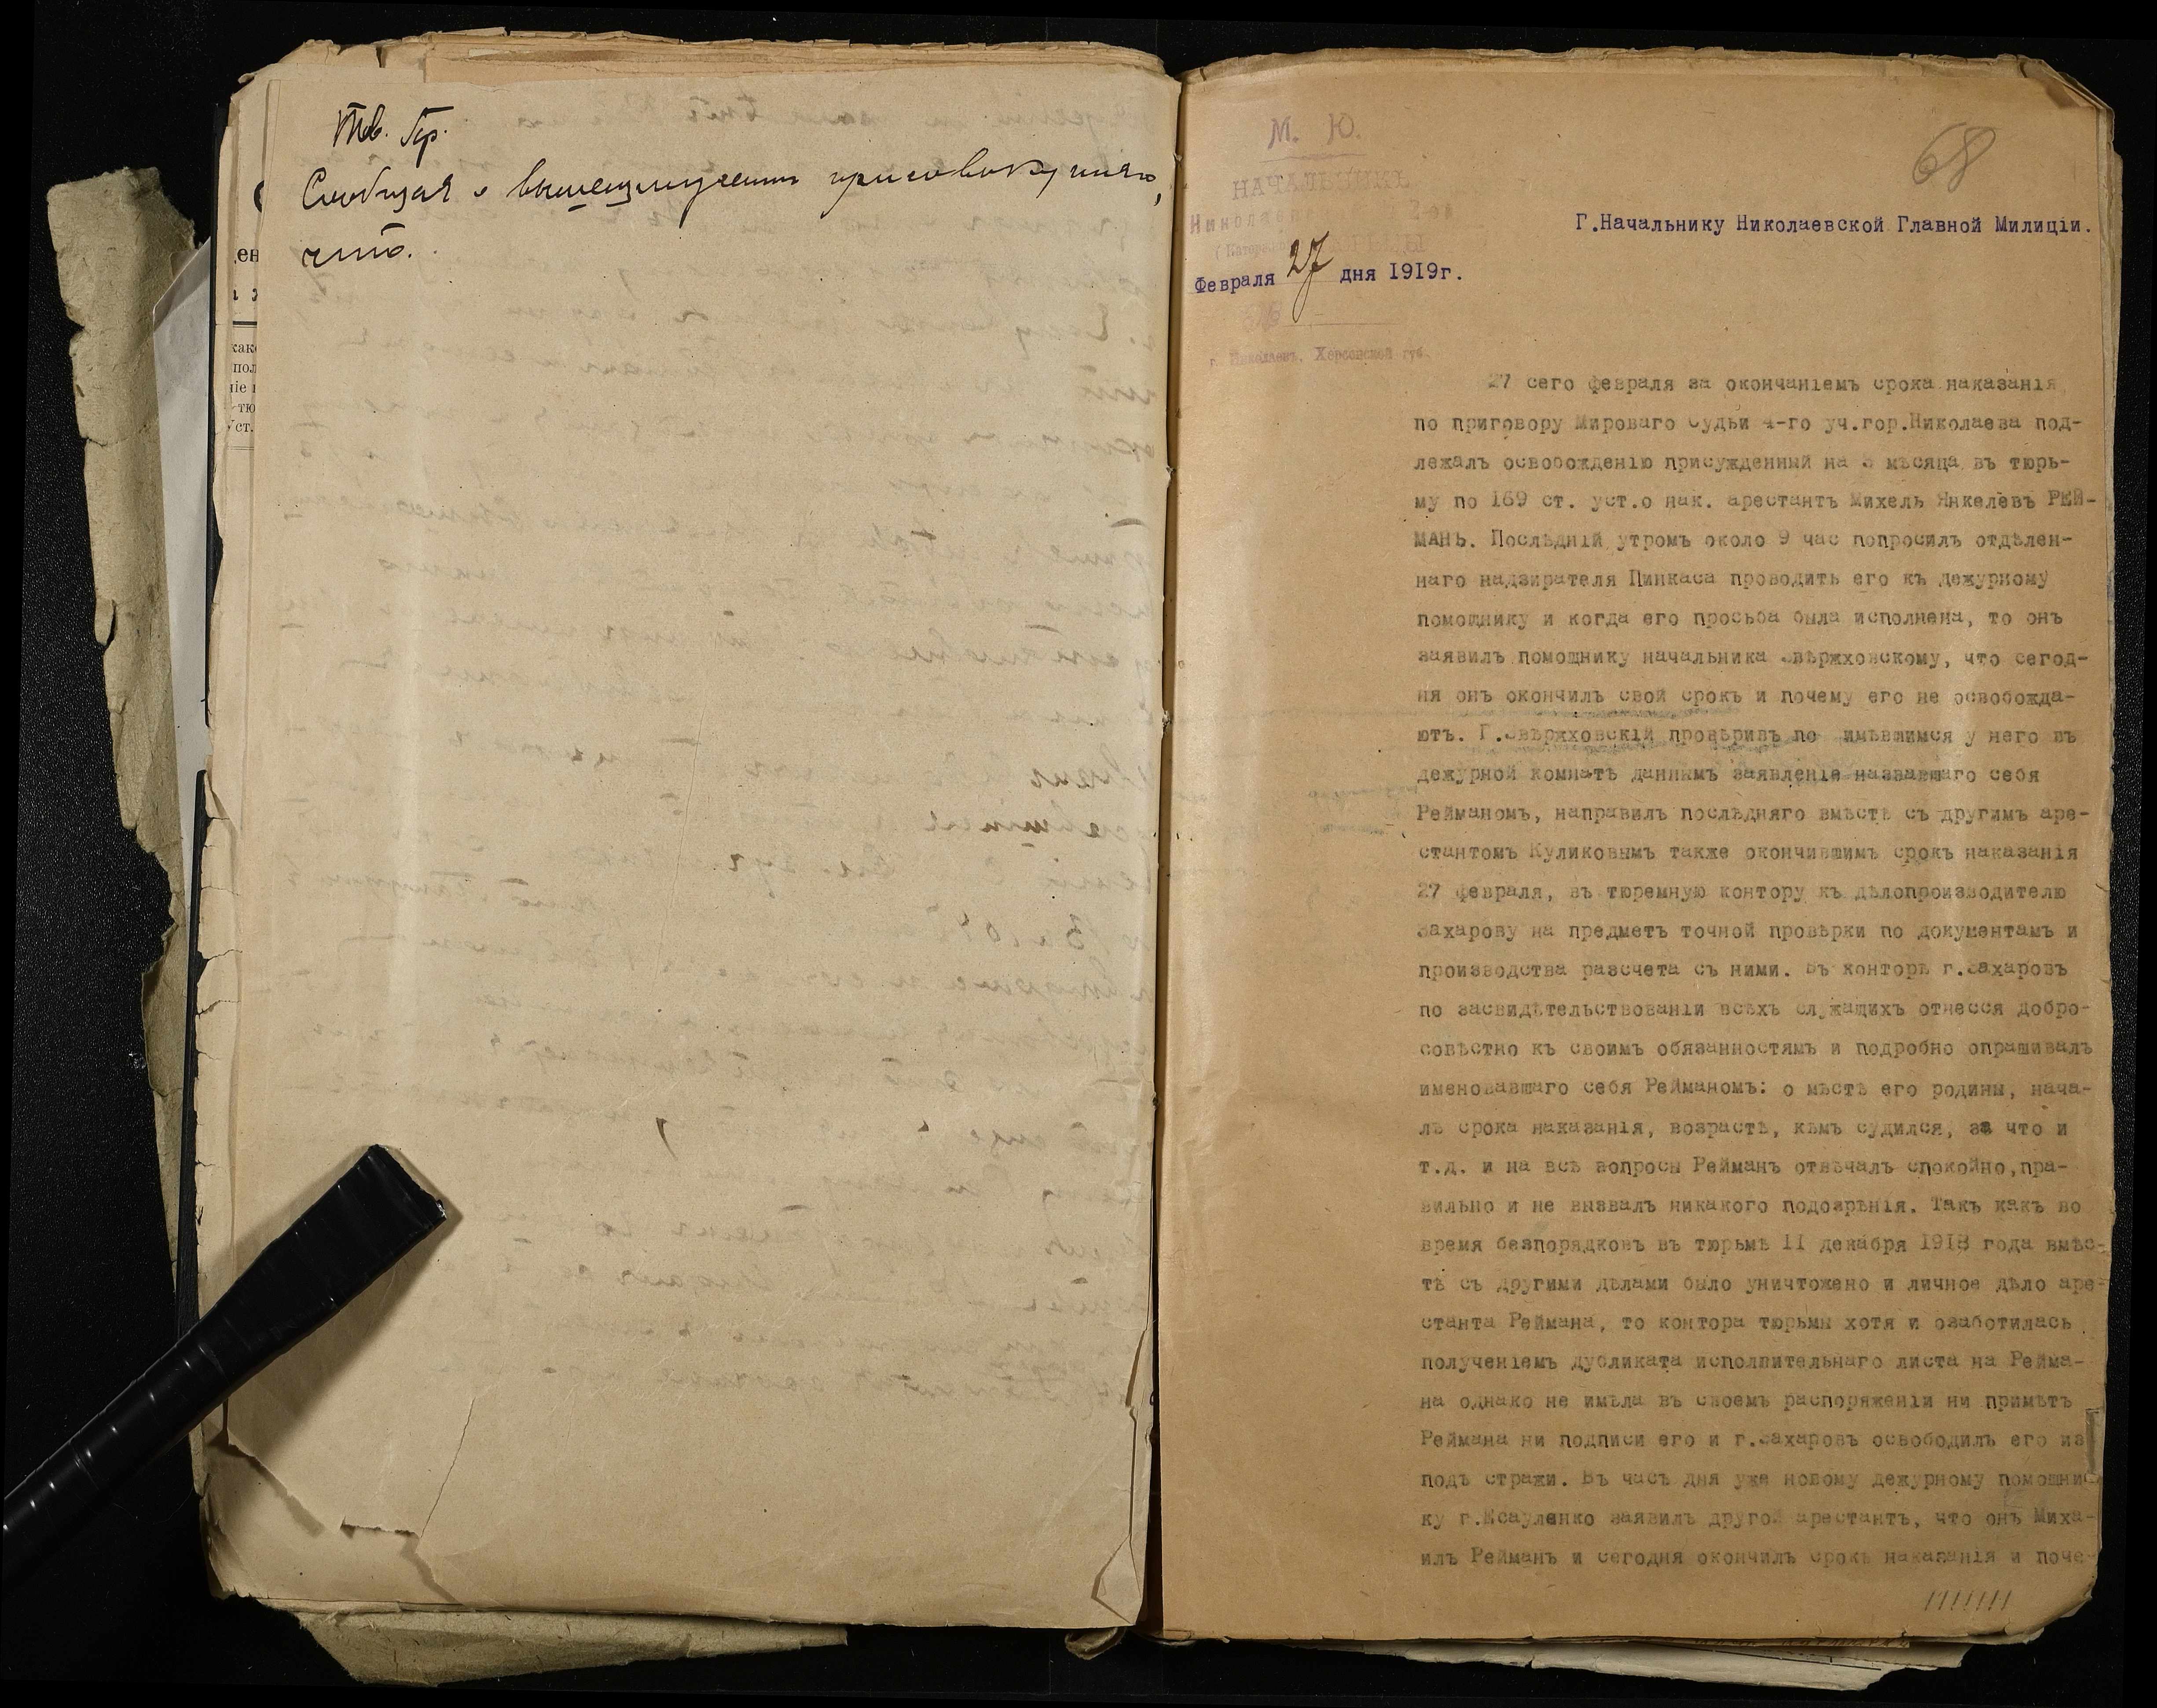 Сообщая о вышеизложенномъ присовокупляю,
что.
ен
как
пол
ніе
тю
Уст.
М. Ю.
НАЧАЛЬНИКЪ
68
Г.Начальнику Николаевской Главной Милиціи.
Февраля 27 дня 1919г.
г. Николаевъ, Херсонской губ.
27 сего февраля за окончаніемъ срока наказанія
по приговору Мироваго Судьи 4-го уч.гор.Николаева под-
лежалъ освобожденію присужденный на 3 мѣсяца въ тюрь-
му по 169 ст. уст.о нак. арестантъ Михель Янкелевъ РЕЙ-
МАНЪ. Послѣдній утромъ около 9 час попросилъ отдѣлен-
наго надзирателя Пинкаса проводить его къ дежурному
помощнику и когда его просьба была исполнена, то онъ
заявилъ помощнику начальника Звѣржховскому, что сегод-
ня онъ окончилъ свой срокъ и почему его не освобожда-
ютъ. Г.Звѣржховскій провѣривъ по имѣвшимся у него въ
дежурной комнатѣ даннымъ заявленіе назвавшаго себя
Рейманомъ, направилъ послѣдняго вмѣстѣ съ другимъ аре-
стантомъ Куликовымъ также окончившимъ срокъ наказанія
27 февраля, въ тюремную контору къ дѣлопроизводителю
Захарову на предметъ точной провѣрки по документамъ и
производства разсчета съ ними. Въ конторѣ г.Захаровъ
по засвидѣтельствованіи всѣхъ служащихъ отнесся добро-
совѣстно къ своимъ обязанностямъ и подробно опрашивалъ
именовавшаго себя Рейманомъ: о мѣстѣ его родины, нача-
лѣ срока наказанія, возрастѣ, кѣмъ судился, за что и
т.д. и на всѣ вопросы Рейманъ отвѣчалъ спокойно,пра-
вильно и не вызвалъ никакого подозрѣнія. Такъ какъ во
время безпорядковъ въ тюрьмѣ 11 декабря 1918 года вмѣс-
тѣ съ другими дѣлами было уничтожено и личное дѣло аре-
станта Реймана, то контора тюрьмы хотя и озаботилась
полученіемъ дубликата исполнительнаго листа на Рейма-
на однако не имѣла въ своемъ распоряженіи ни примѣтъ
Реймана ни подписи его и г.Захаровъ освободилъ его из
подъ стражи. Въ часъ дня уже новому дежурному помощни
ку г.Есауленко заявилъ другой арестантъ, что онъ Миха-
илъ Рейманъ и сегодня окончилъ срокъ наказанія и поче